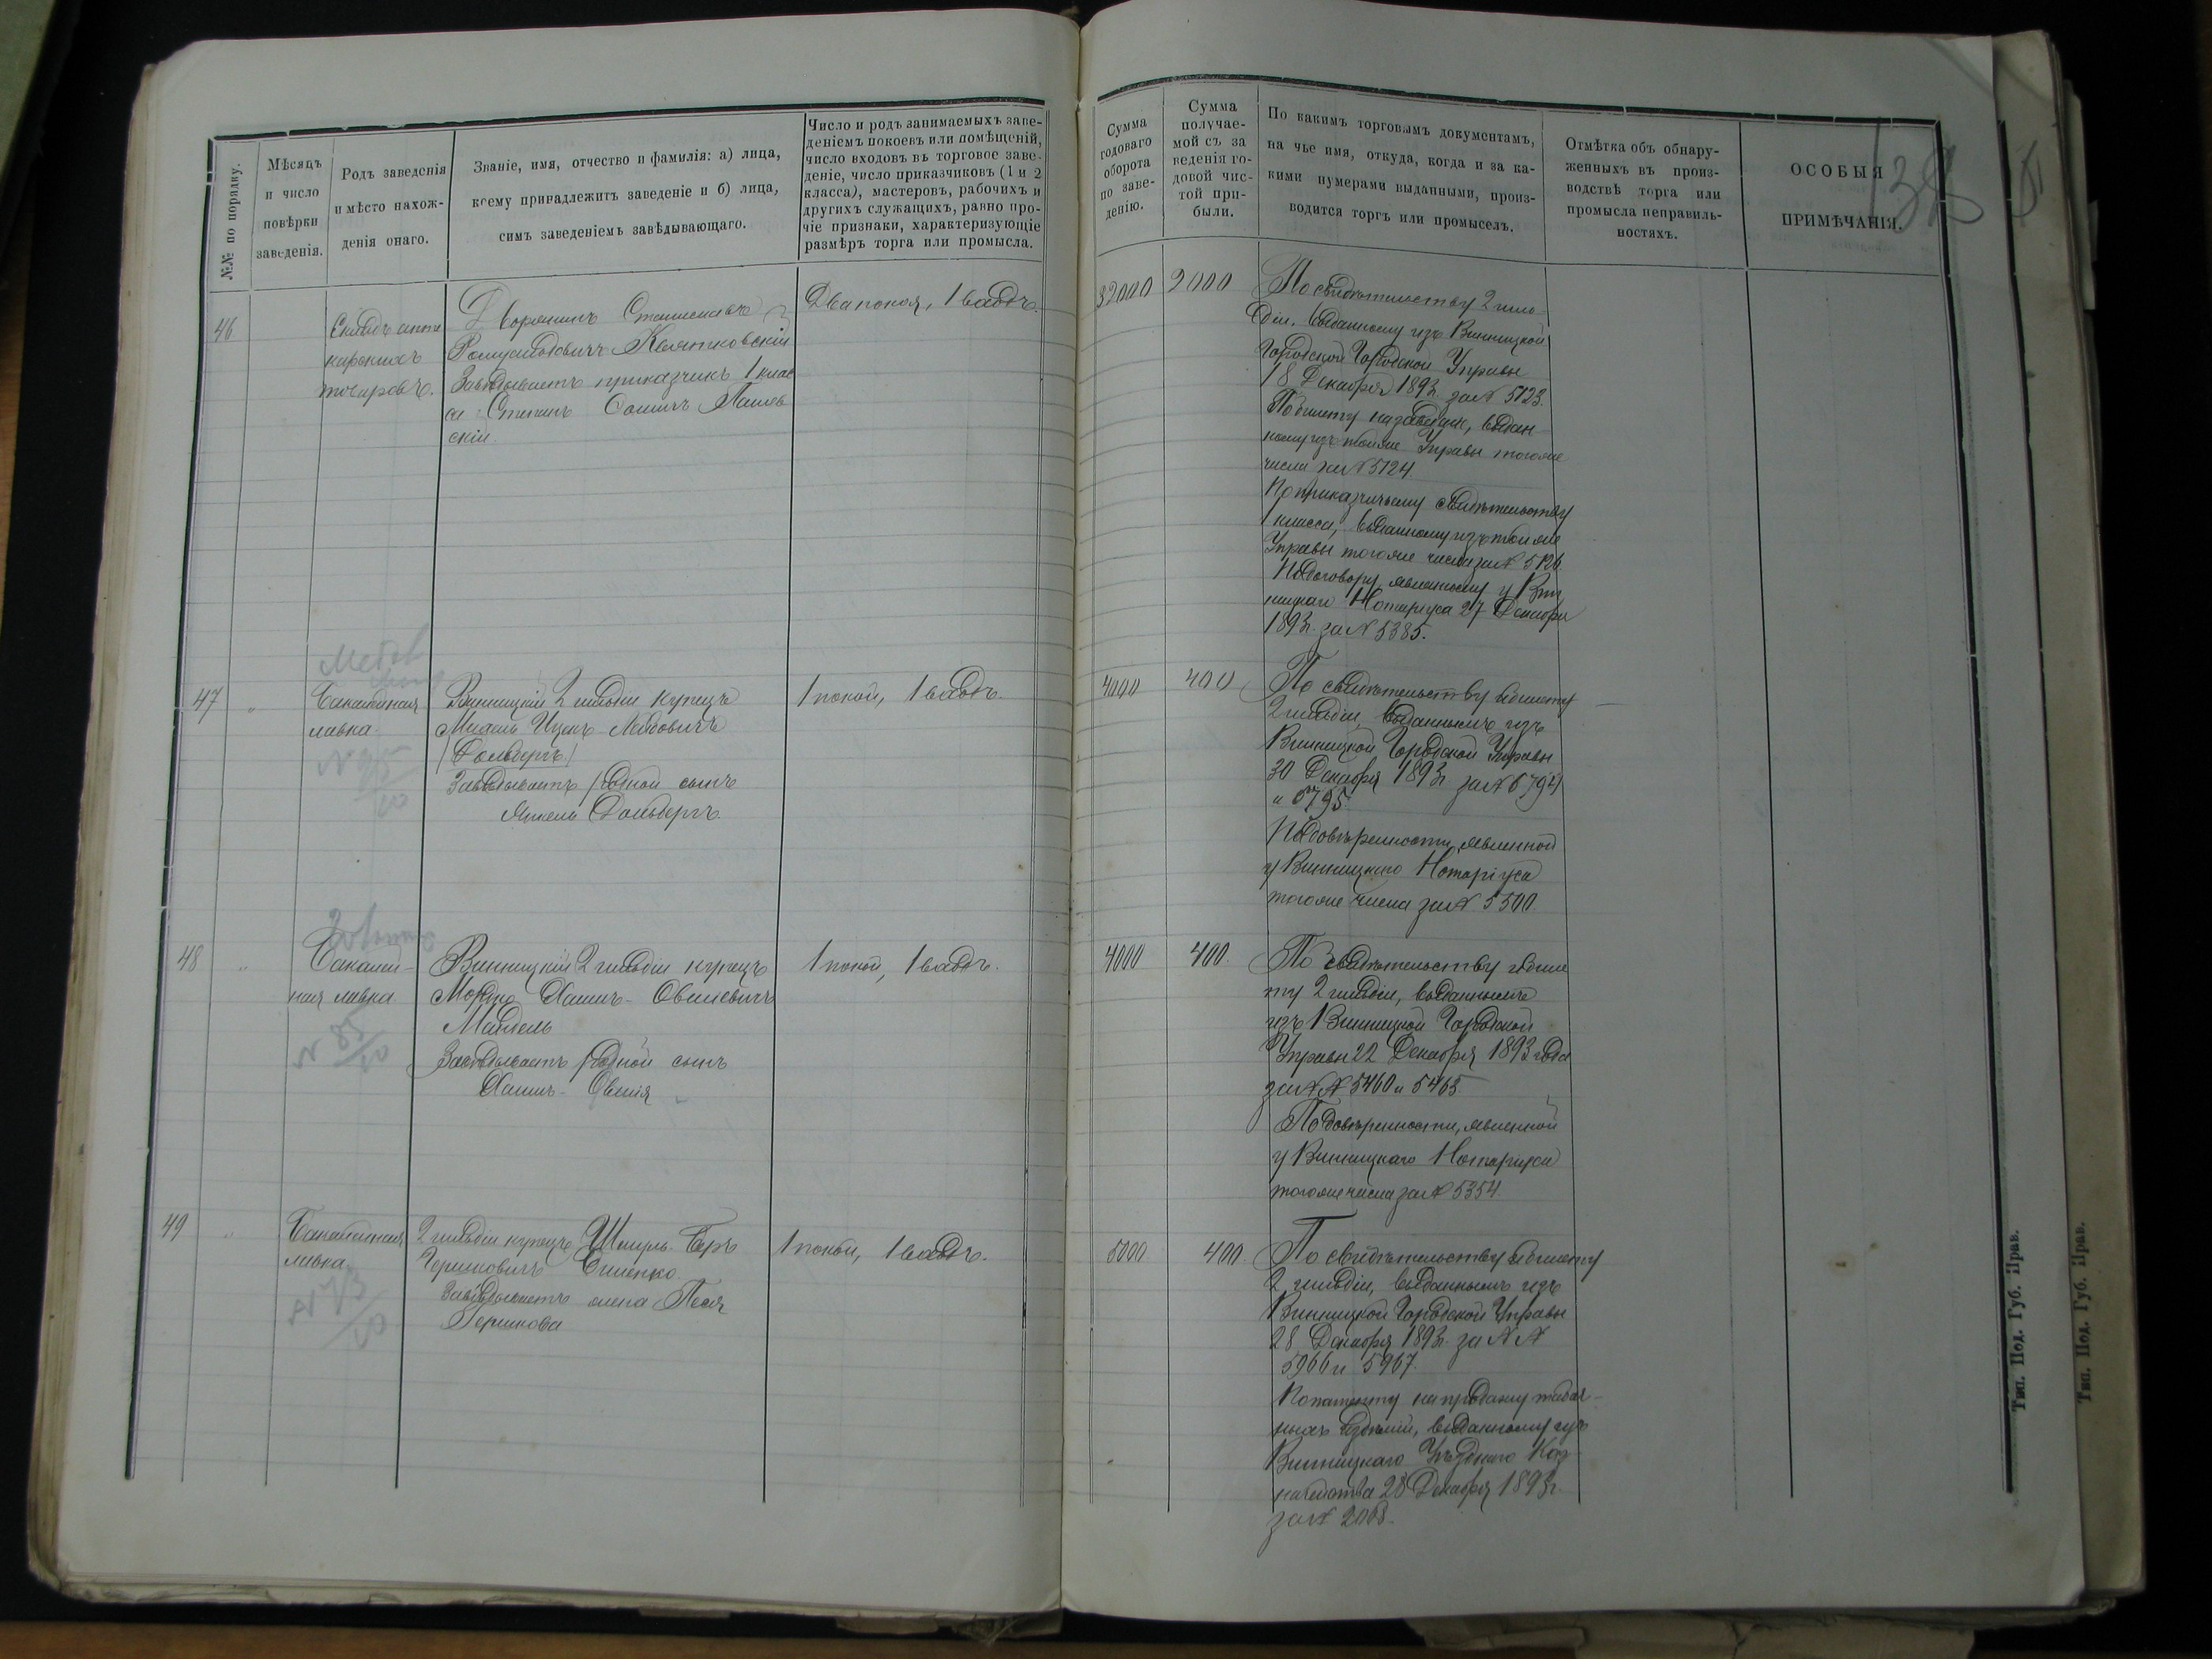 №№ по порядку.
Мѣсяцъ
и число
повѣрки
заведенія.
Родъ заведенія
и мѣсто нахож-
денія онаго.
Званіе, имя, отчество и фамилія: а) лица,
коему принадлежитъ заведеніе и б) лица,
симъ заведеніемъ завѣдывающаго.
Число и родъ занимаемыхъ заве-
деніемъ покоевъ или помѣщеній,
число входовъ въ торговое заве-
деніе, число приказчиковъ (1 и 2
класса), мастеровъ, рабочихъ и
другихъ служащихъ, равно про-
чіе признаки, характеризующіе
размѣръ торга или промысла.
Сумма
годоваго
оборота
по заве-
денію.
Сумма
получае-
мой съ за
веденія го-
довой чис-
той при-
были.
По какимъ торговымъ документамъ,
на чье имя, откуда, когда и за ка-
кими нумерами выданными, произ-
водится торгъ или промыселъ.
Отмѣтка объ обнару-
женныхъ въ произ-
водствѣ торга или
промысла неправиль-
ностяхъ.
ОСОБЫЯ
ПРИМѢЧАНІЯ.
46
Складъ апте
карскихъ
товаровъ.
Дворянинъ Станиславъ
Ромуальдовичъ Квятковскій
Завѣдываетъ приказчикъ 1 клас
са Степанъ
скій.
Два покоя, 1 входъ.
32000
2000
По свидѣтельству 2 гиль-
діи, выданному изъ Винницкой
Городской Городской Управы
18 Декабря 1893 г. за № 5123.
По билету на заведеніе, выдан-
ному изъ той же Управы того же
числа за № 5124
По приказчичьему свидѣтельству
1 класса, выданному изъ той же
Управы того же числа за № 5126
По договору, явленному у Вин
ницкаго Нотаріуса 27 Декабря
1893 г. за № 5385.
47
"
Бакалейная
лавка
Винницкій 2 гильдіи купецъ
Ицекъ Лейбовичъ
Завѣдываетъ родной сынъ
1 покой, 1 входъ.
4000
400
По свидѣтельству и билету
2 гильдіи, выданнымъ изъ
Винницкой Городской Управы
30 Декабря 1893 г. за № 6794
и 6795.
По довѣренности, явленной
у Винницкаго Нотаріуса
того же числа за № 5500
48
"
Бакалей-
ная лавка
№ 85/10
Винницкій 2 гильдіи купецъ
Мордко Хаимъ-Овшіевичъ
Майдель
Завѣдываетъ родной сынъ
Хаимъ-Овшія
1 покой, 1 входъ.
4000
400.
По свидѣтельству и биле
ту 2 гильдіи, выданнымъ
изъ Винницкой Городской
Управы 22 Декабря 1893 года
за №№ 5460 и 5465.
По довѣренности, явленной
у Винницкаго Нотаріуса
того же числа за № 5354.
49
"
Бакалейная
лавка.
2 гильдіи купецъ Шмуль-Беръ
Гершковичъ
Завѣдываетъ жена Песя
Гершкова
1 покой, 1 входъ.
5000
400.
По свидѣтельству и билету
2 гильдіи, выданнымъ изъ
Винницкой Городской Управы
28 Декабря 1893 г. за №№
5966 и 5967.
По патенту на продажу табач-
ныхъ издѣлій, выданному изъ
Винницкаго Уѣзднаго Каз-
начейства 28 Декабря 1893 г.
за № 2068.
Тип. Под. Губ. Прав.
Тип. Под. Губ. Прав.